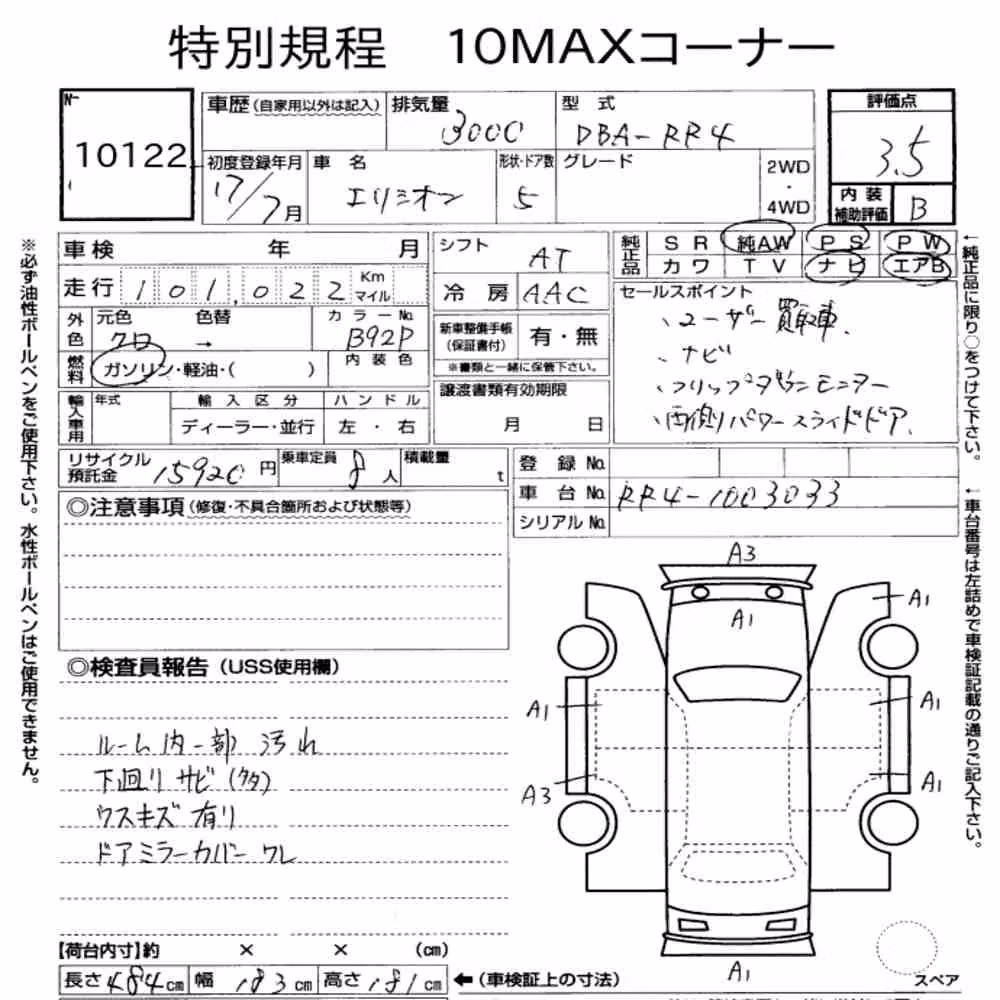 特別規程 10MAXコーナー
No 10122
車歴(自家用以外は記入) 排気量 3000 型式 DBA-RR4
評価点 3.5
初度登録年月 17/7月 車名 エリシオン 形状・ドア数 5 グレード 2WD・4WD
内装補助評価 B
車検 年 月
シフト AT
純正品 SR 純AW PS PW
カワ TV ナビ エアB
走行 101,022 Km マイル
冷房 AAC
セールスポイント
、ユーザー買取車.
、ナビ
、フリップダウンモニター
、両側パワースライドドア.
外色 元色 クロ 色替 → カラーNo. B92P
新車整備手帳(保証書付) 有・無
※書類と一緒に保管下さい。
燃料 ガソリン・軽油・( ) 内装色
譲渡書類有効期限 月 日
輸入車用 年式 輸入区分 ハンドル
ディーラー・並行 左・右
リサイクル預託金 15920円 乗車定員 8人 積載量 t
登録No.
車台No. RR4-1003033
シリアルNo.
◎注意事項(修復・不具合箇所および状態等)
◎検査員報告(USS使用欄)
ルーム内一部汚れ
下廻りサビ(多)
ウスキズ有り
ドアミラーカバーワレ
A3
A1
A1
A1
A1
A3
A1
A1
スペア
【荷台内寸】約 × × (cm)
長さ484cm 幅183cm 高さ181cm ←(車検証上の寸法)
※必ず油性ボールペンをご使用下さい。水性ボールペンはご使用できません。
←純正品に限り○をつけて下さい。
←車台番号は左詰めで車検証記載の通りご記入下さい。